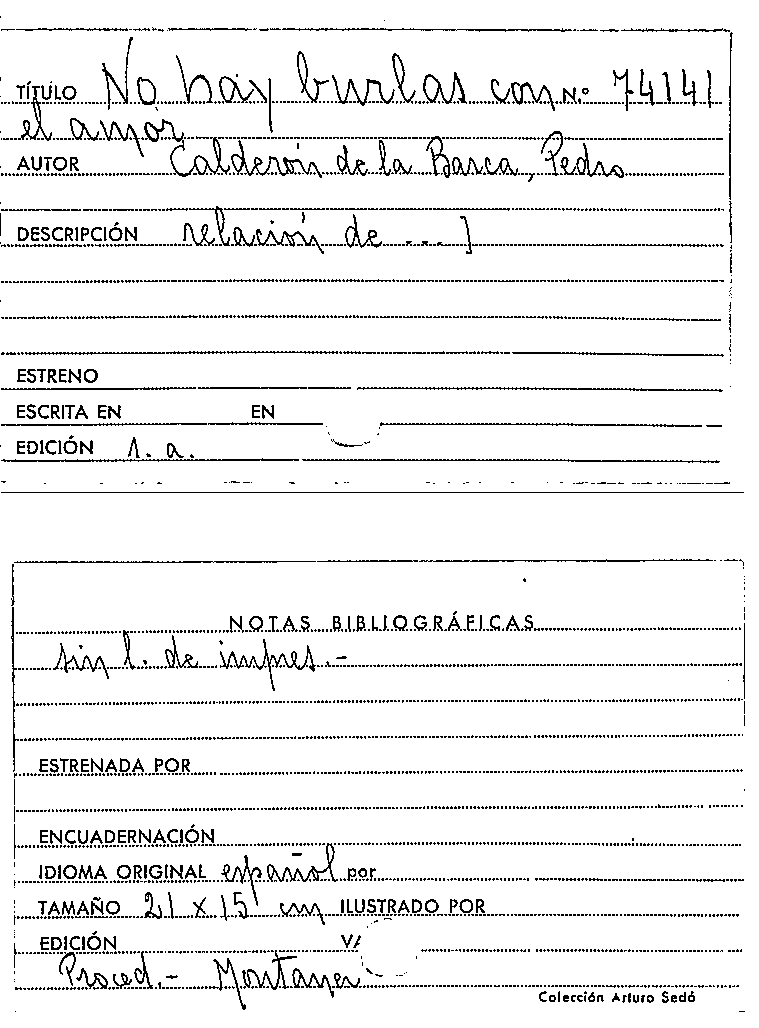 TÍTULO No hay burlas con N.º 74141
el amor
AUTOR Calderón de la Barca, Pedro
DESCRIPCIÓN relación de ... ]
ESTRENO
ESCRITA EN EN
EDICIÓN 1. a.
NOTAS BIBLIOGRÁFICAS
sin l. de impres.-
ESTRENADA POR
ENCUADERNACIÓN
IDIOMA ORIGINAL español por
TAMAÑO 21 x 15 cm ILUSTRADO POR
EDICIÓN
Proced.- Montaner
Colección Arturo Sedó